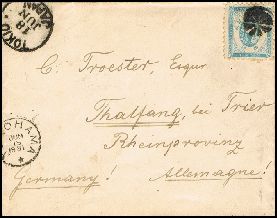 TOKIO
18
JUN
JAPAN
C. Troester, Esqur
Thalfang, bei Trier
Rheinprovinz
Germany! Allemagne!
OHAMA